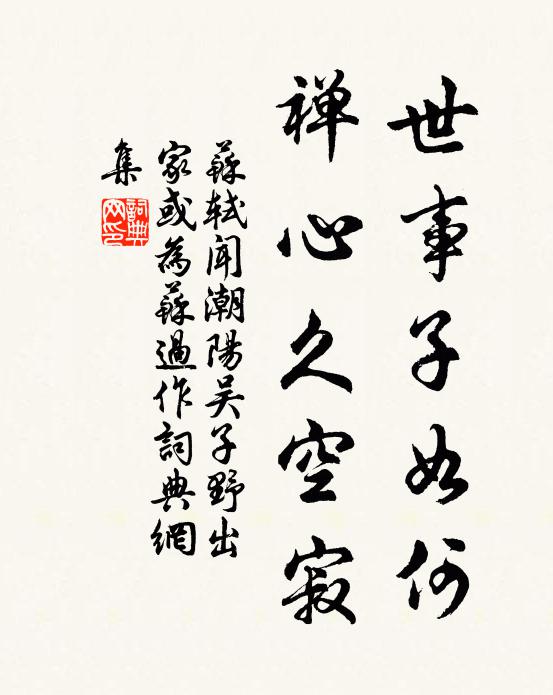 世事子如何
禅心久空寂
蘇軾闻潮陽吴子野出
家或為蘇過作詞典網
集
詞典
网印